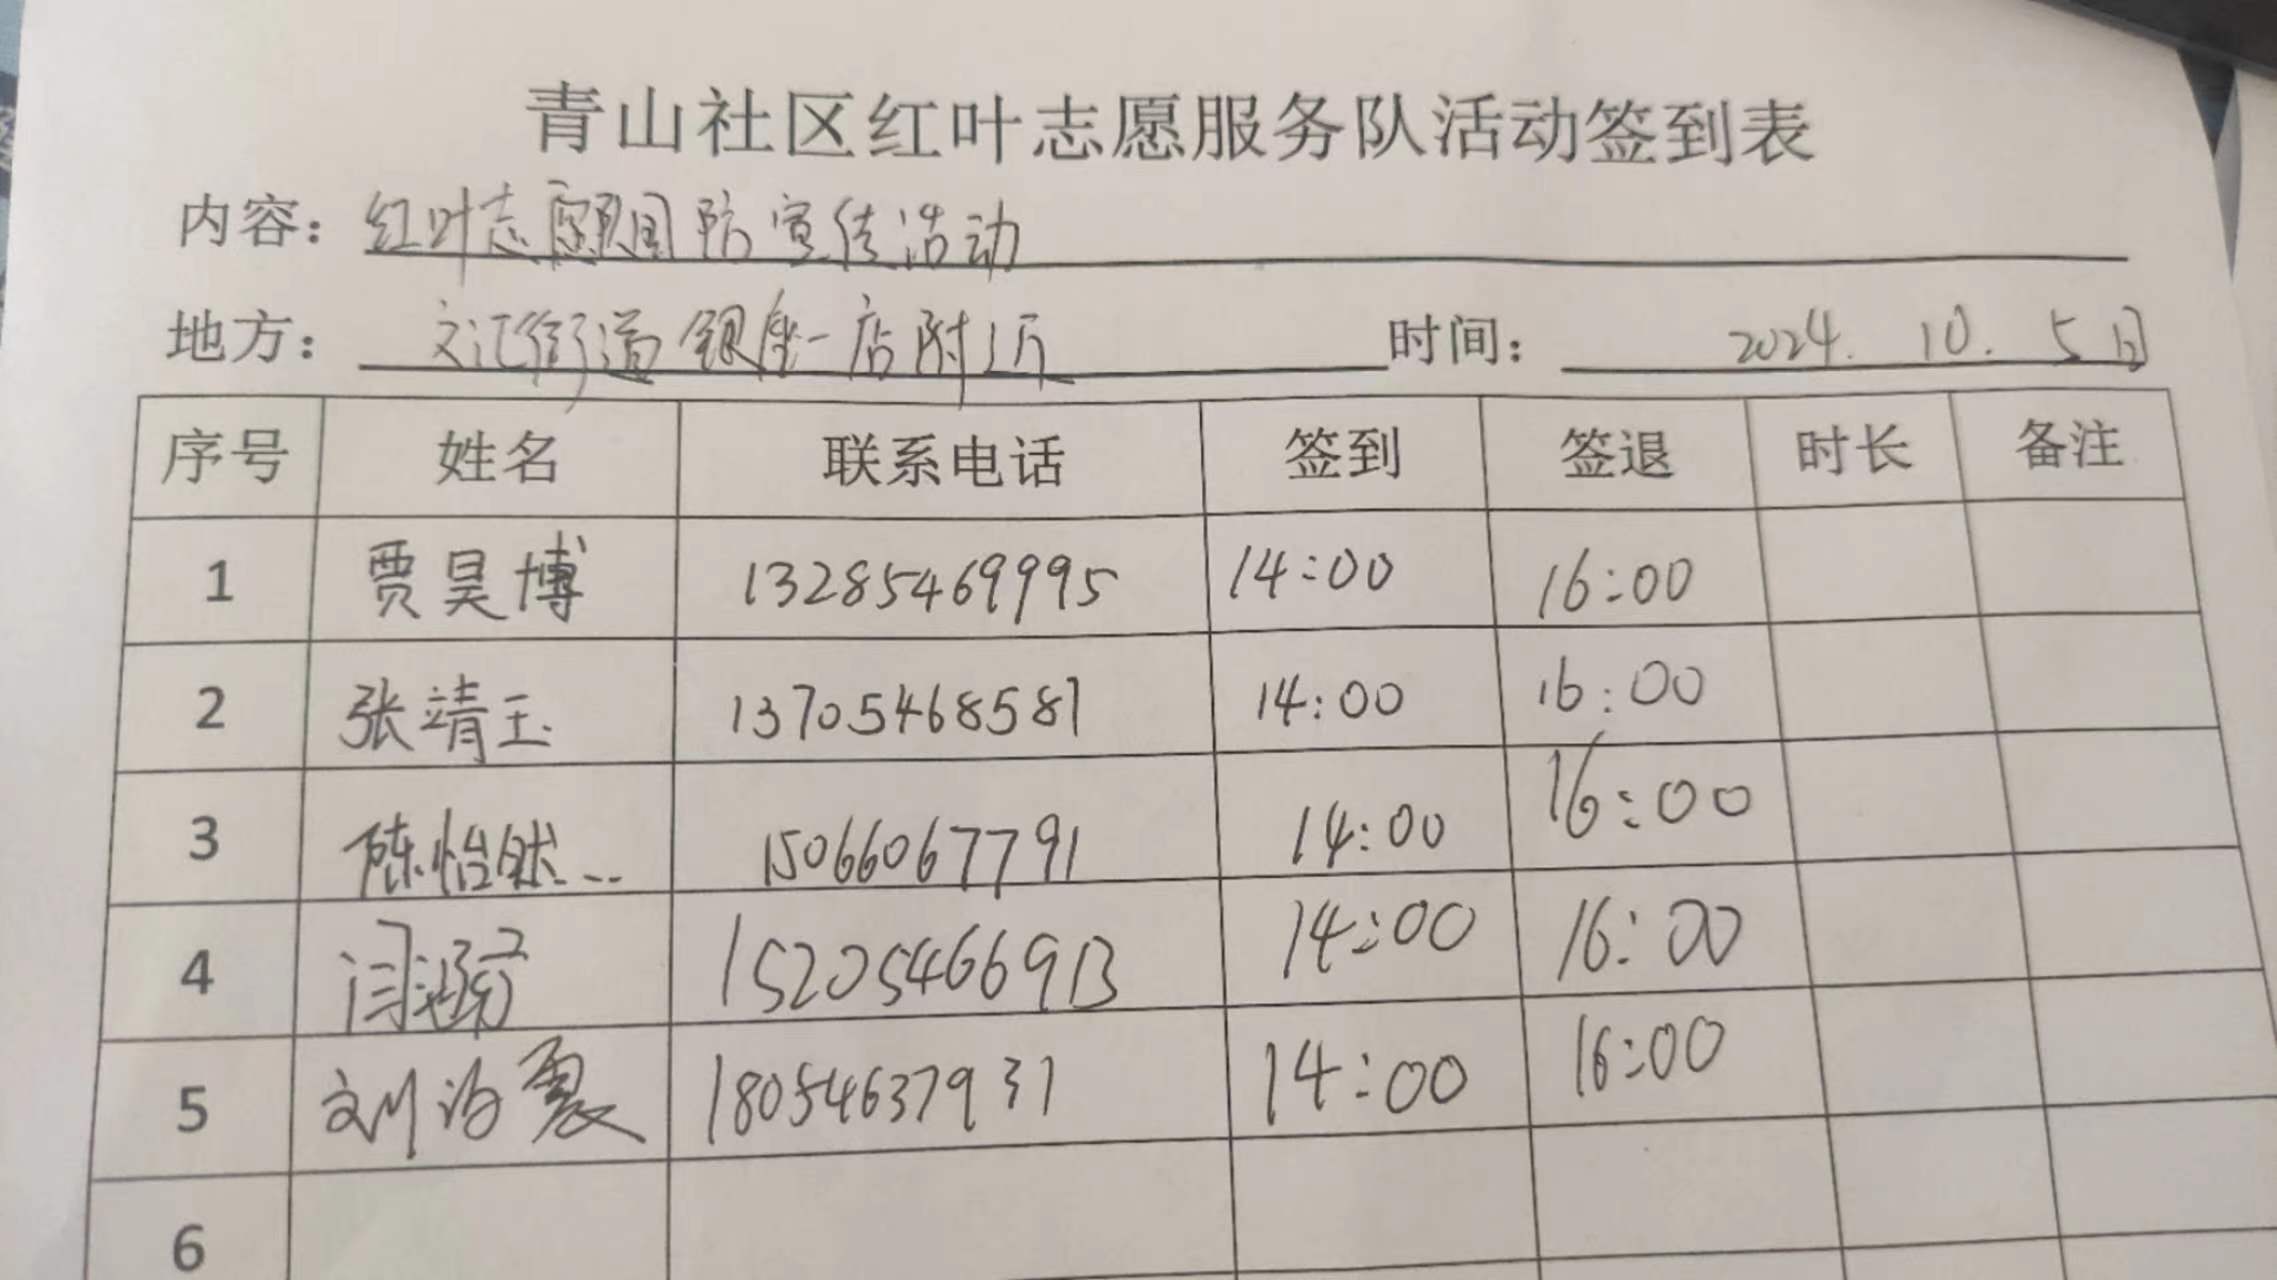 青山社区红叶志愿服务队活动签到表
内容：红叶志愿国防宣传活动
地方：文汇街道银座一店附近 时间：2024.10.5日
序号 姓名 联系电话 签到 签退 时长 备注
1 贾昊博 13285469995 14:00 16:00
2 张靖玉 13705468587 14:00 16:00
3 陈怡然 15066067791 14:00 16:00
4 闫 15205466913 14:00 16:00
5 刘 18054637937 14:00 16:00
6